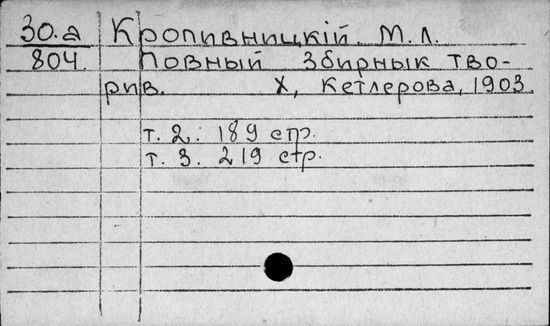 30.a Кропивницкій М. Л.
804. Повный збирнык тво-
рив. Х, Кетлерова, 1903.
т. 2. 189 стр.
т. 3. 219 стр.